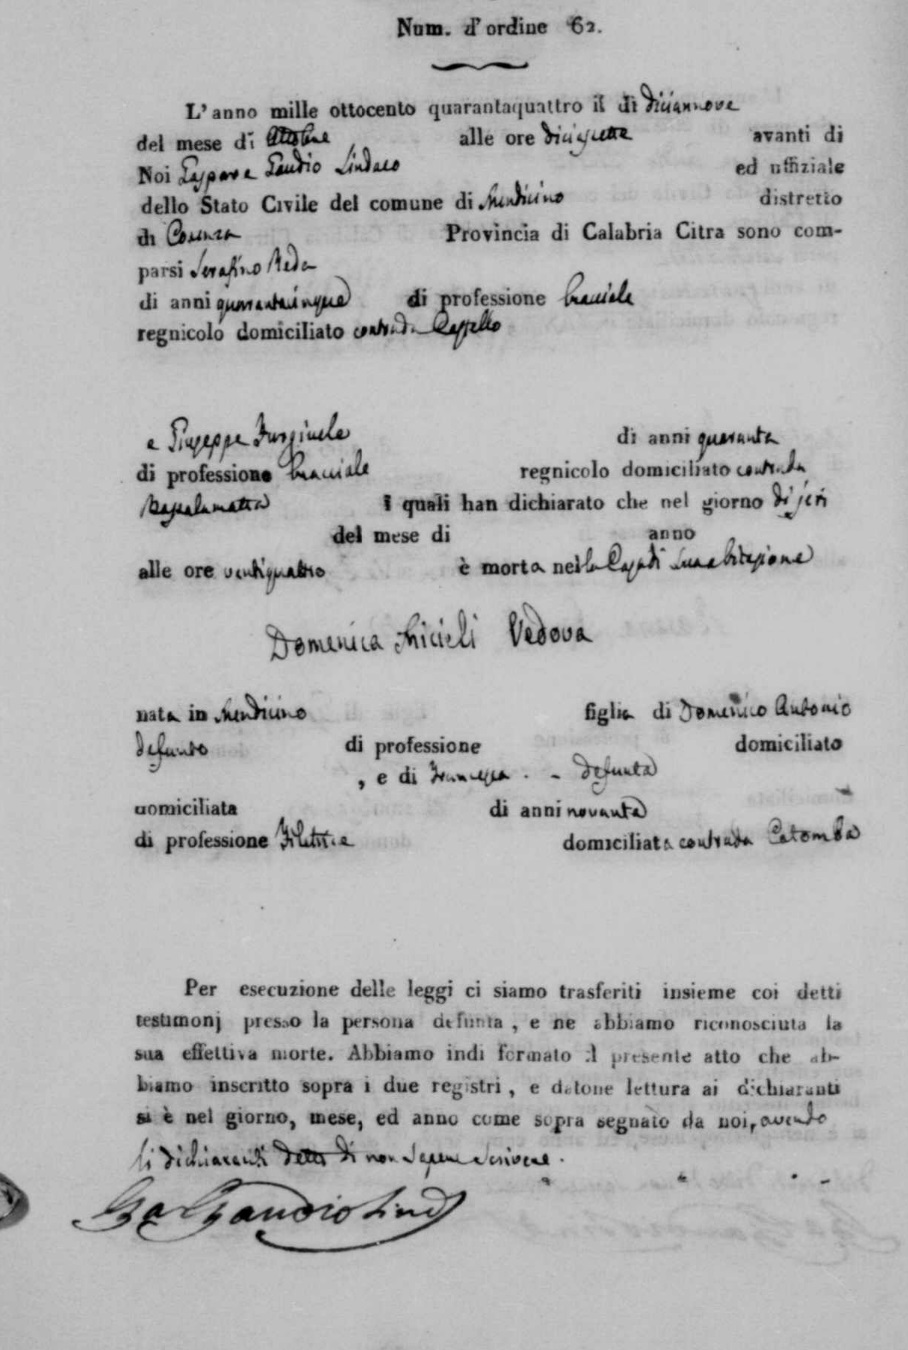 Num. d'ordine 62.
L'anno mille ottocento quarantaquattro il dì diciannove
del mese di Ottobre alle ore diciasette avanti di
Noi Gaspare Gaudio Sindaco ed uffiziale
dello Stato Civile del comune di Mendicino distretto
di Cosenza Provincia di Calabria Citra sono com-
parsi Serafino Reda
di anni quarantacinque di professione bracciale
regnicolo domiciliato contrada
e Giuseppe di anni quaranta
di professione bracciale regnicolo domiciliato contrada
i quali han dichiarato che nel giorno di jeri
del mese di anno
alle ore ventiquattro è morta nella Casa di sua abitazione
Domenica Vedova
nata in Mendicino figlia di Domenico Antonio
defunto di professione domiciliato
, e di Francesca defunta
domiciliata di anni novanta
di professione Filatrice domiciliata contrada Catomba
Per esecuzione delle leggi ci siamo trasferiti insieme coi detti
testimonj presso la persona defunta, e ne abbiamo riconosciuta la
sua effettiva morte. Abbiamo indi formato il presente atto che ab-
biamo inscritto sopra i due registri, e datone lettura ai dichiaranti
si è nel giorno, mese, ed anno come sopra segnato da noi, avendo
li dichiaranti detto di non sapere scrivere.
Gas Gaudio Sind